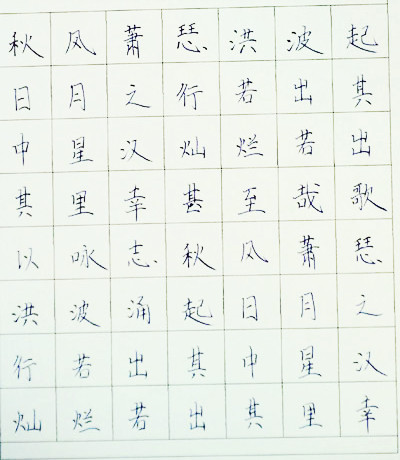 秋风萧瑟洪波起
日月之行若出其
中星汉灿烂若出
其里幸甚至哉歌
以咏志秋风萧瑟
洪波涌起日月之
行若出其中星汉
灿烂若出其里幸